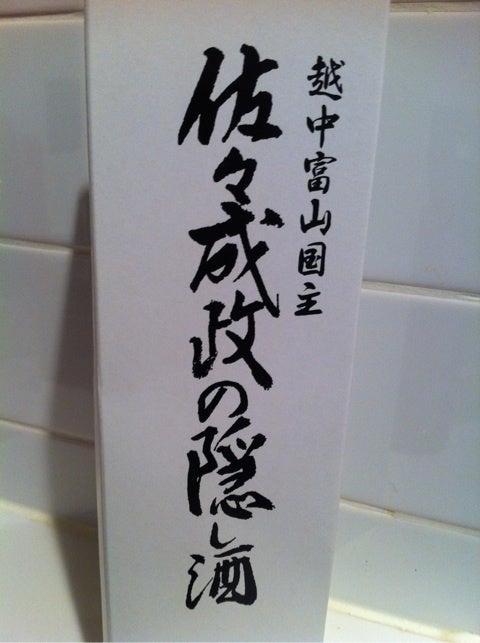 越中富山国主
佐々成政の隠し酒